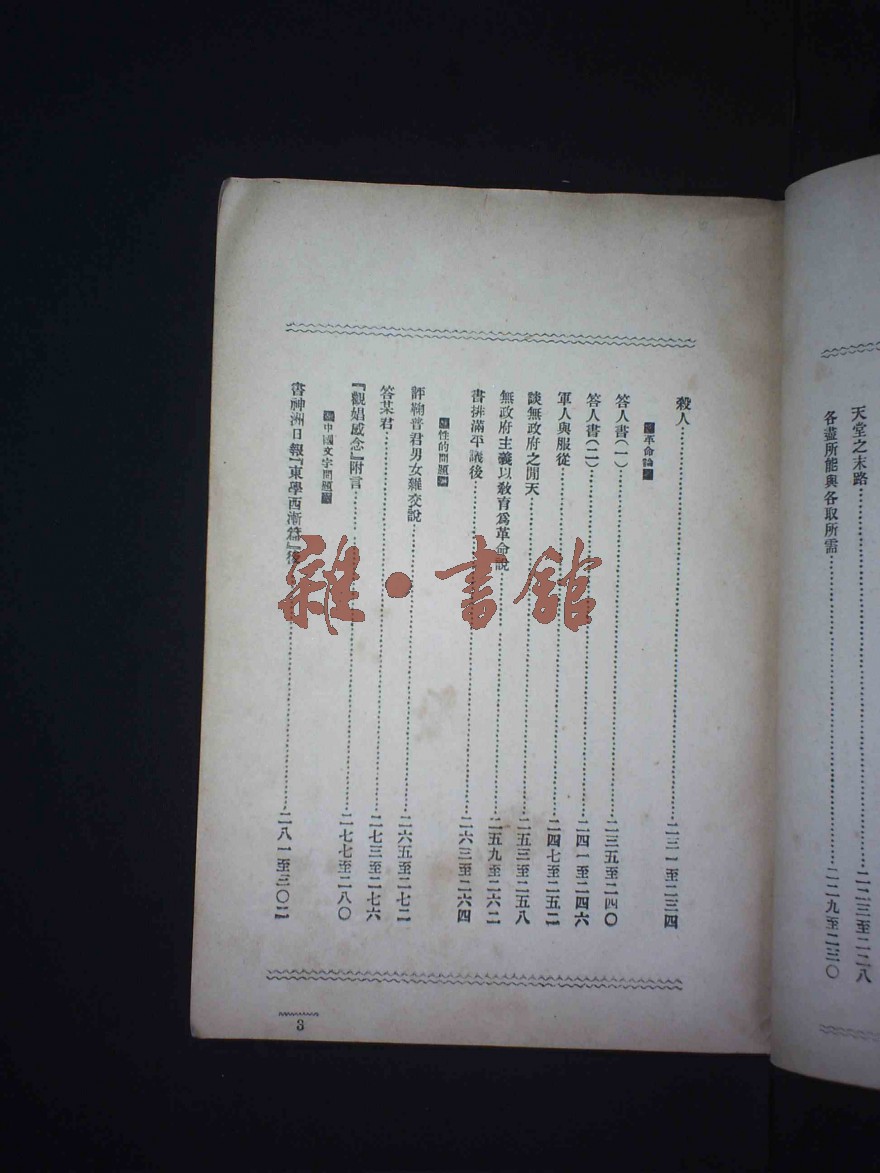 天堂之末路……二二三至二二八
各盡所能與各取所需……二二九至二三〇
殺人……二三一至二三四
革命論
答人書(一)……二三五至二四〇
答人書(二)……二四一至二四六
軍人與服從……二四七至二五二
談無政府之閒天……二五三至二五八
無政府主義以敎育爲革命說……二五九至二六二
書排滿平議後……二六三至二六四
性的問題
評鞠普君男女雜交說……二六五至二七二
答某君……二七三至二七六
『觀娼感念』附言……二七七至二八〇
中國文字問題
書神洲日報『東學西漸篇』後……二八一至三〇二
3
雜·書館